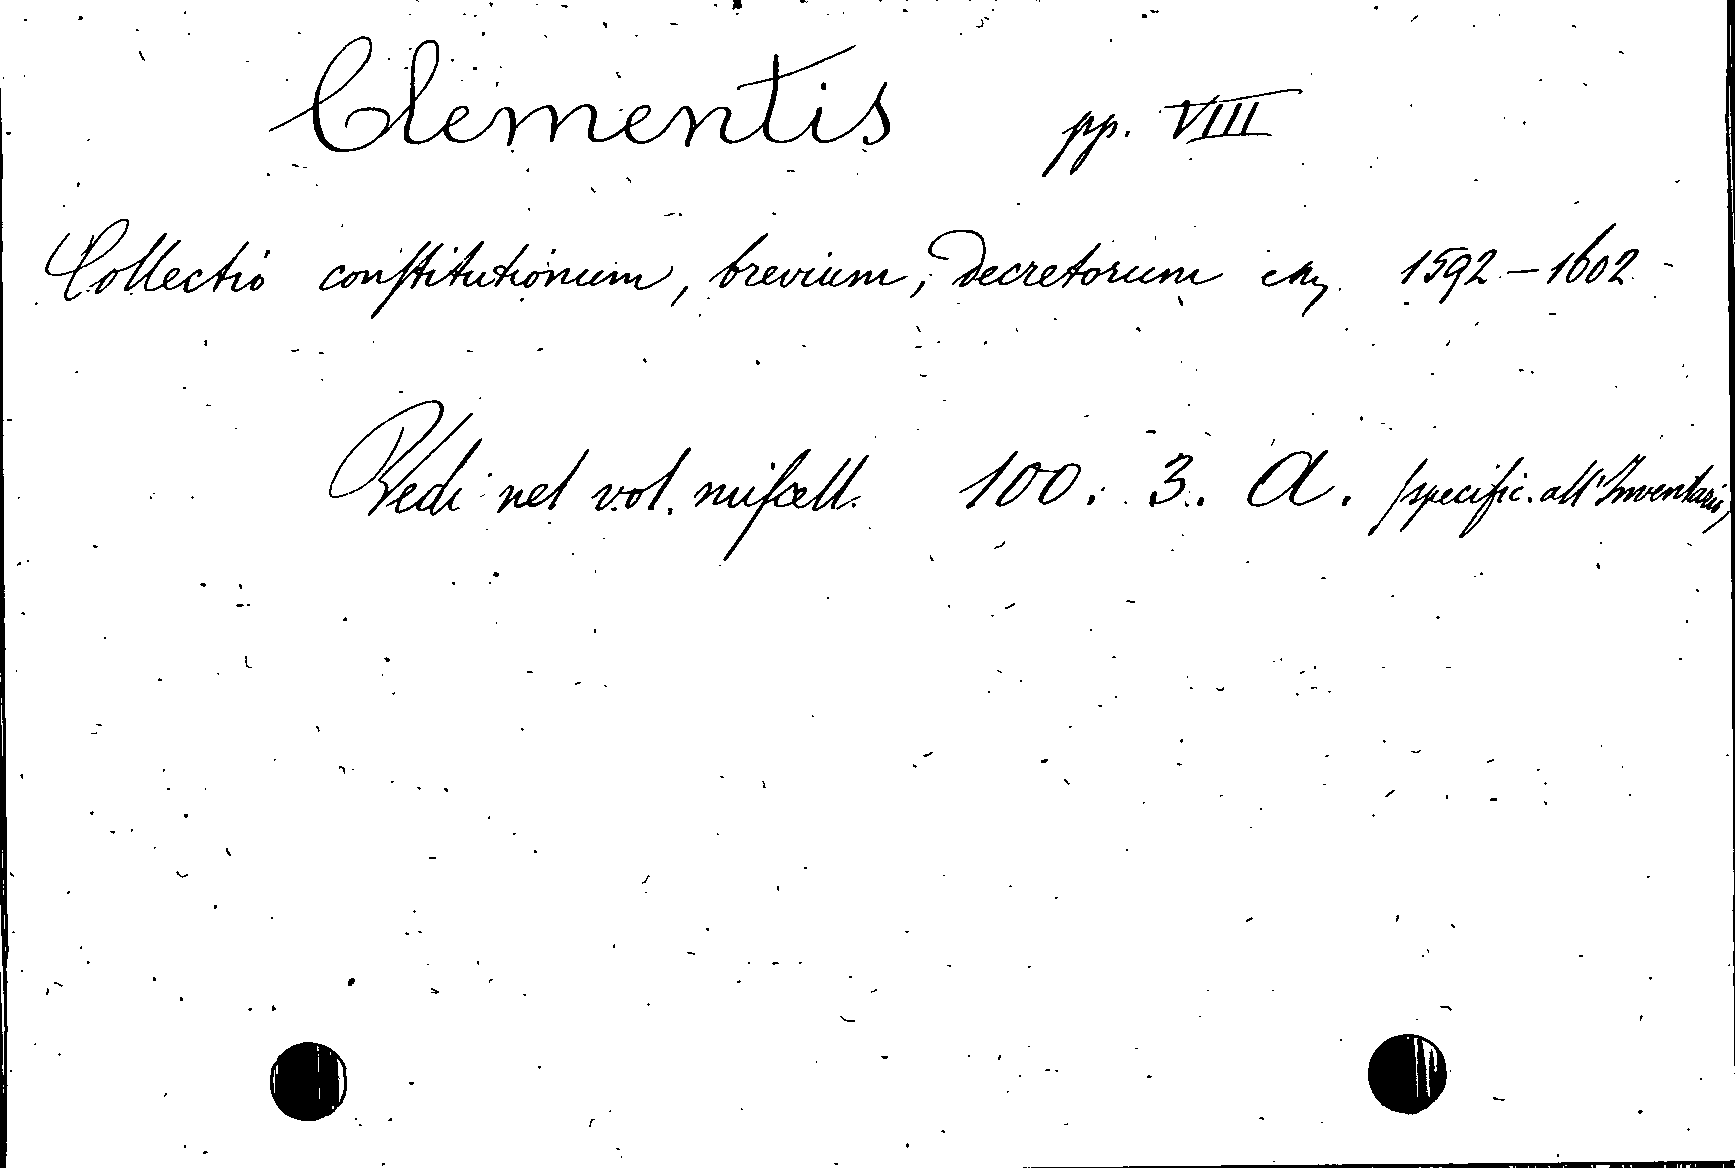 Clementis pp. VIII
Collectio conſtitutionum, brevium, decretorum etc. 1592–1602
Vedi nel vol. miſcell. 100. 3. A. (specific. all'Inventario)